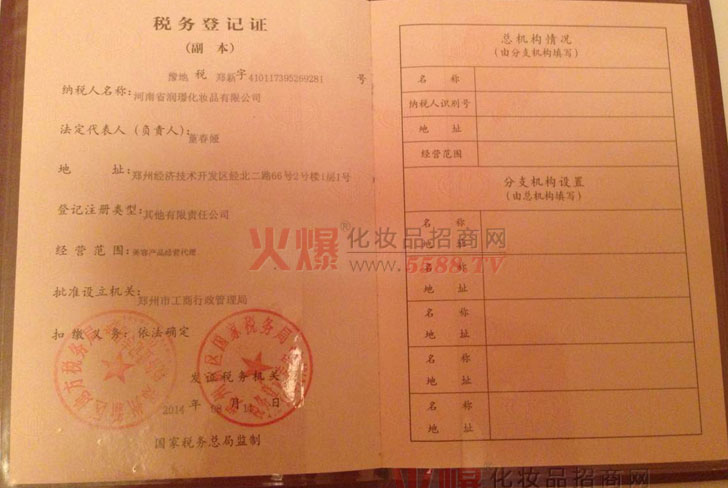 税务登记证
(副本)
豫地 税 郑新字410117395269281 号
纳税人名称:河南省润瑾化妆品有限公司
法定代表人(负责人):董春
地 址:郑州经济技术开发区经北二路66号2号楼1层1号
登记注册类型:其他有限责任公司
经营范围:美容产品经营代理
批准设立机关:郑州市工商行政管理局
扣缴义务:依法确定
发证税务机关
2014 年 月 日
国家税务总局监制
总机构情况
(由分支机构填写)
名 称
纳税人识别号
地 址
经营范围
分支机构设置
(由总机构填写)
名 称
地 址
名 称
地 址
名 称
地 址
名 称
地 址
名 称
地 址
火爆®化妆品招商网
www.5588.TV
火爆®化妆品招商网